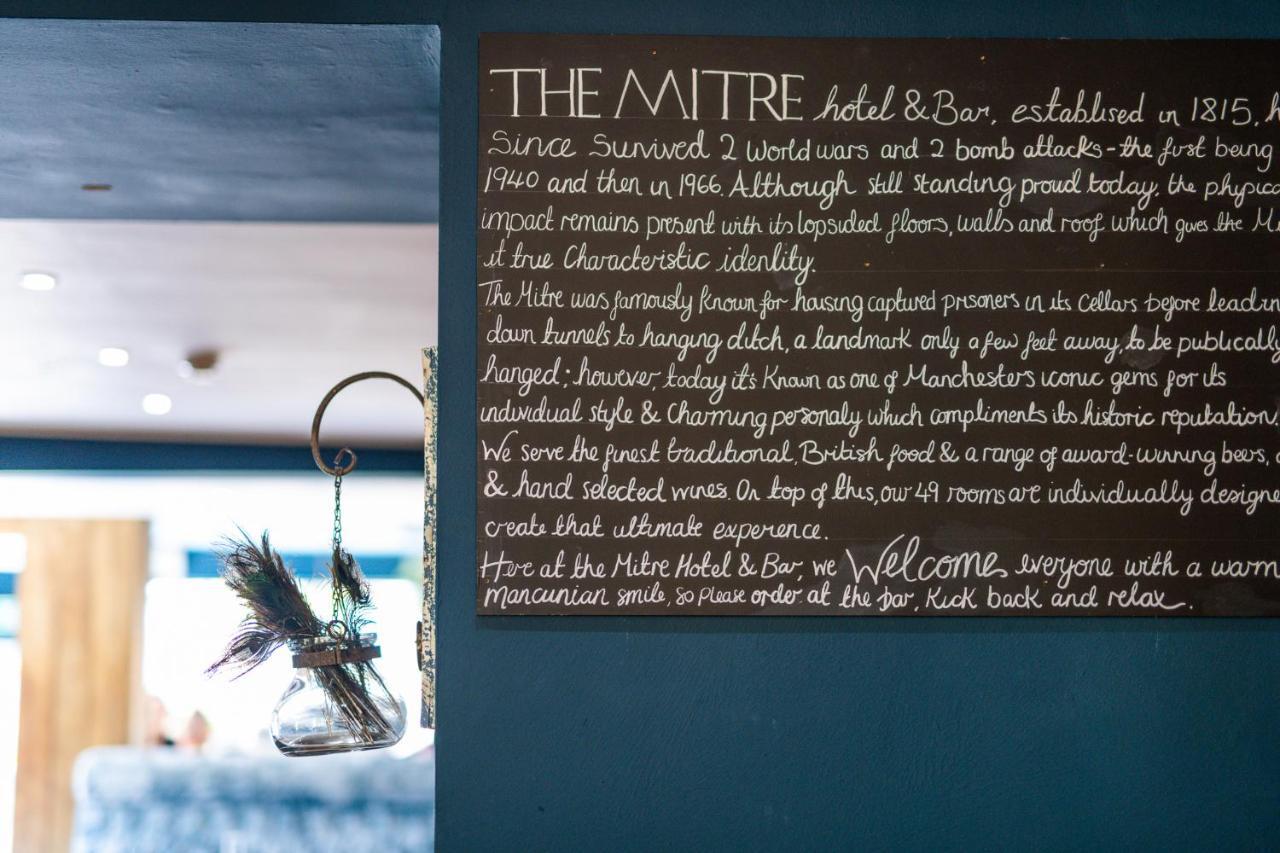 THE MITRE hotel & Bar, establised in 1815, h
Since Survived 2 World wars and 2 bomb attacks - the first being
1940 and then in 1966. Although still standing proud today, the physica
impact remains present with its lopsided floors, walls and roof which gives the M
it true Characteristic identity.
The Mitre was famously known for housing captured prisoners in its Cellars before leadin
down tunnels to hanging ditch, a landmark only a few feet away, to be publically
hanged; however, today it's Known as one of Manchesters iconic gems for its
individual style & Charming personaly which compliments its historic reputation.
We serve the finest traditional, British food & a range of award-winning beers,
& hand selected wines. On top of this, our 49 rooms are individually designe
create that ultimate experence.
Here at the Mitre Hotel & Bar, we Welcome everyone with a warm
mancunian smile, so please order at the bar, Kick back and relax.